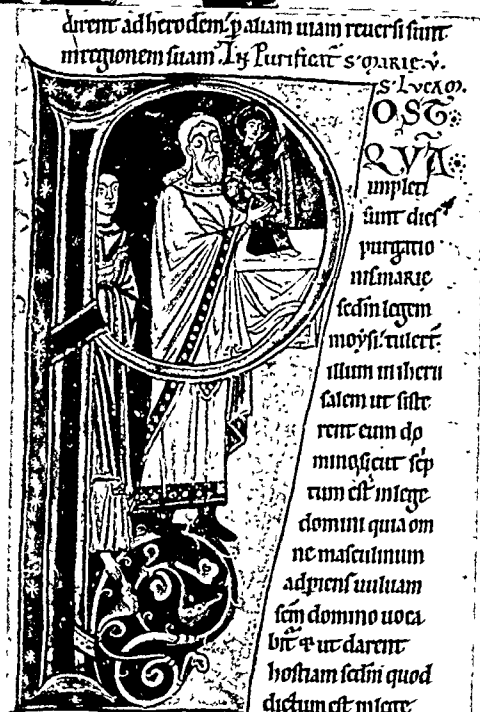 dirent ad herodem. p aliam uiam reuersi sunt
in regionem suam. In Purificat s. marie. v.
s. Lucam.
OST
QVA
impleti
sunt dies
purgatio
nis marie
scdm legem
moysi. tulert
illum in iheru
salem ut siste
rent eum dno
mino. sicut scp
tum est in lege
domini quia om
ne masculinum
adpiens uuluam
scm domino uoca
bit & ut darent
hostiam scdm quod
dictum est in lege